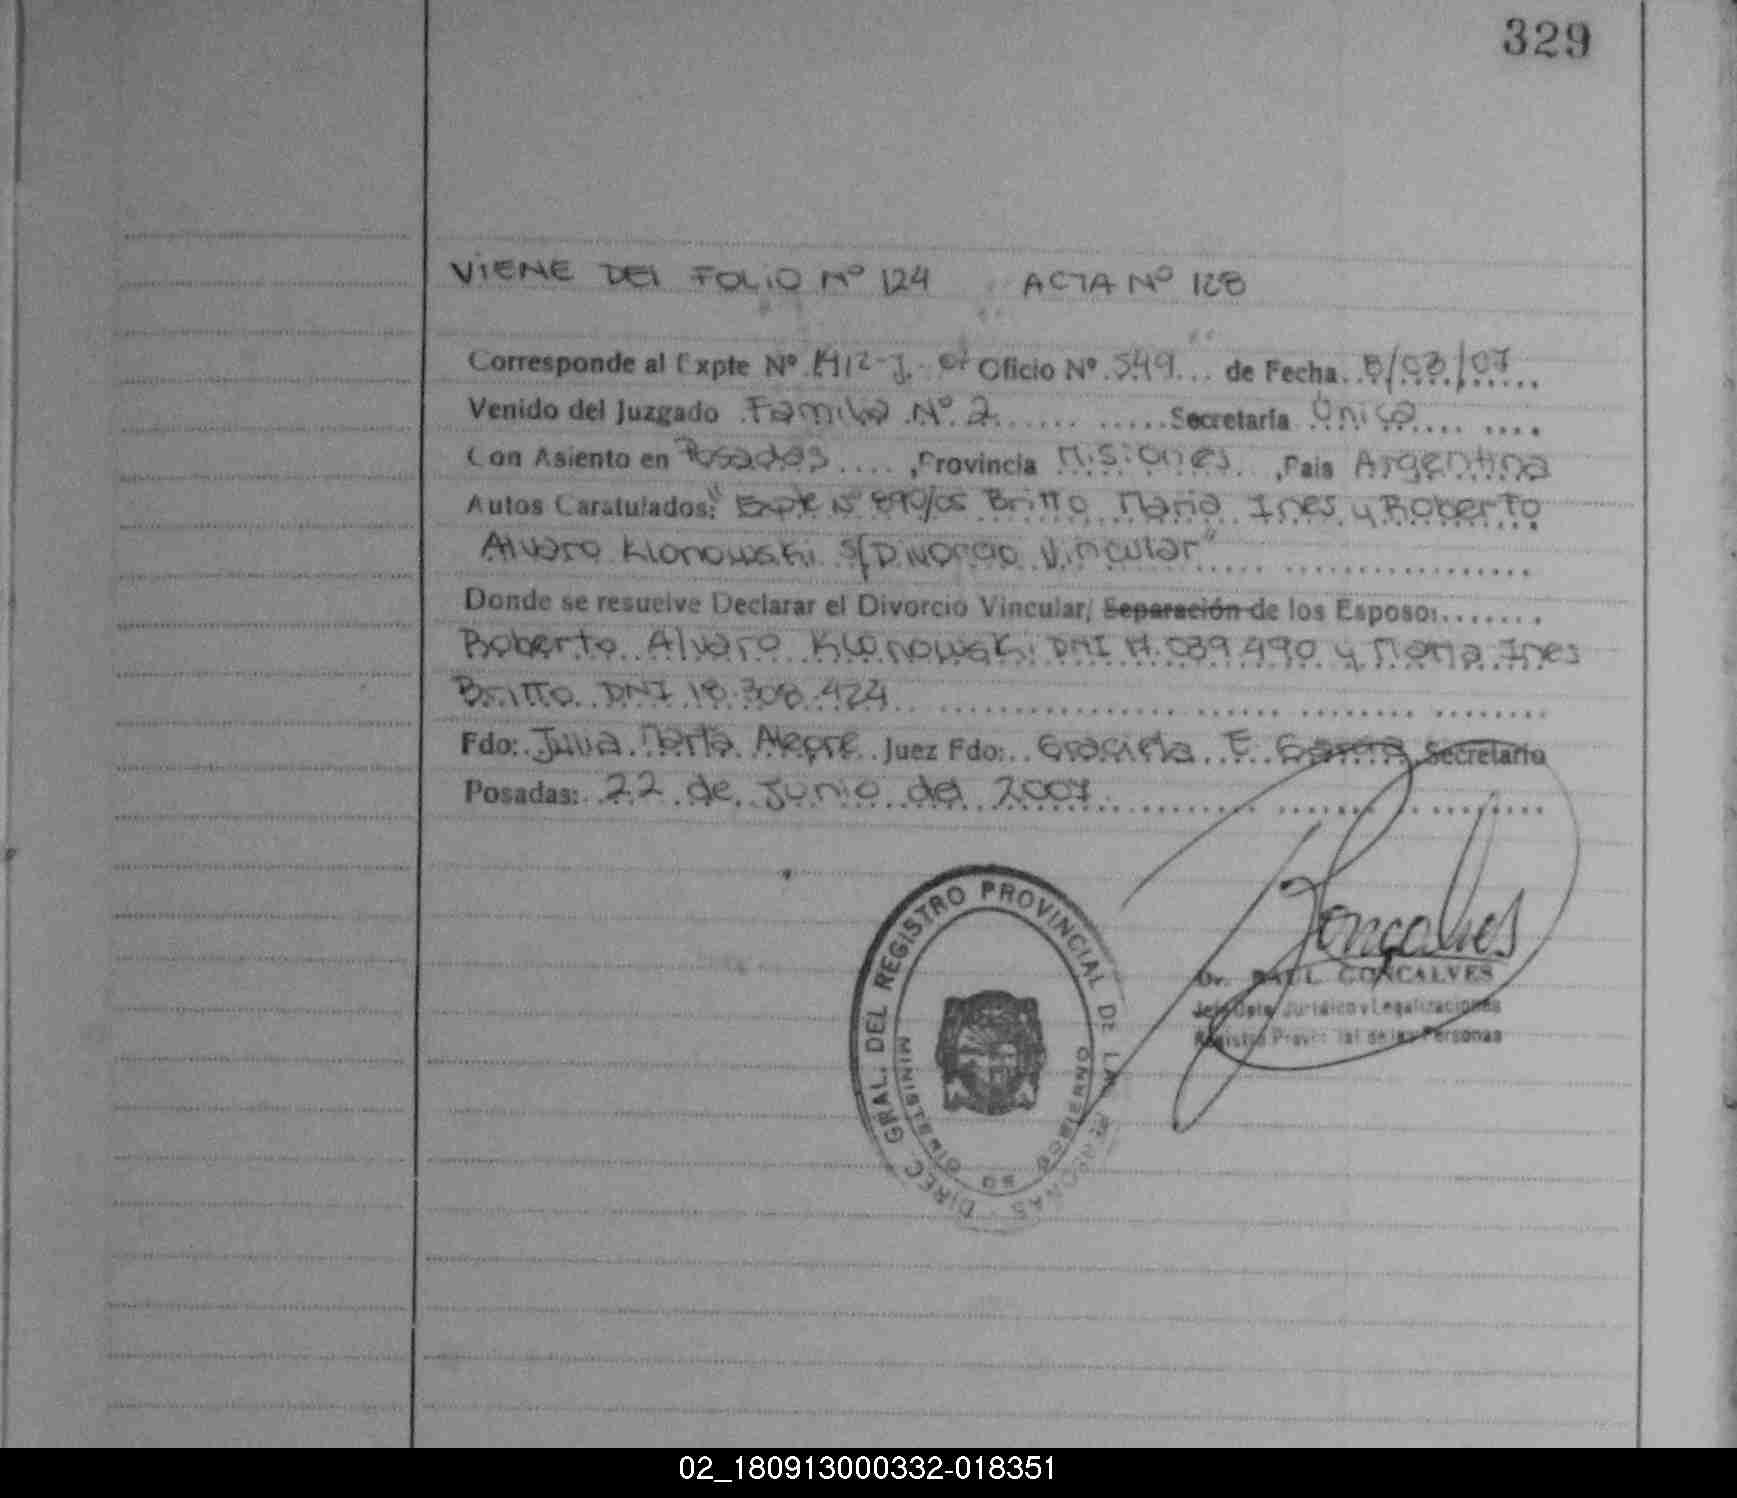 329
VIENE DEL FOLIO Nº 124 ACTA Nº 128
Corresponde al Expte Nº 1412-J- Oficio Nº 549 de Fecha 8/03/07
Venido del Juzgado Familia Nº 2 Secretaría Única
Con Asiento en Posadas, Provincia Misiones, Pais Argentina
Autos Caratulados: "Expte Nº 890/05 Britto Maria Ines y Roberto
Alvaro Klonowski S/Divorcio Vincular"
Donde se resuelve Declarar el Divorcio Vincular/ Separación de los Esposos
Roberto Alvaro Klonowski DNI 17.039.490 y Maria Ines
Britto DNI 18.308.424
Fdo: Julia Marta Alegre Juez Fdo: Graciela E. Garcia Secretario
Posadas: 22 de Junio del 2007
Gonçalves
Dr. RAUL GONÇALVES
Jefe Dpto Jurídico y Legalizaciones
Registro Provincial de las Personas
DIREC GRAL. DEL REGISTRO PROVINCIAL DE LAS PERSONAS
MINISTERIO DE GOBIERNO
02_180913000332-018351